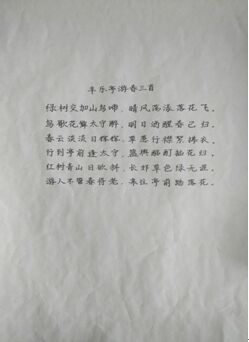 丰乐亭游春三首
绿树交加山鸟啼，晴风荡漾落花飞。
鸟歌花舞太守醉，明日酒醒春已归。
春云淡淡日辉辉，草惹行襟絮拂衣。
行到亭前逢太守，篮舆酩酊插花归。
红树青山日欲斜，长郊草色绿无涯。
游人不管春将老，来往亭前踏落花。